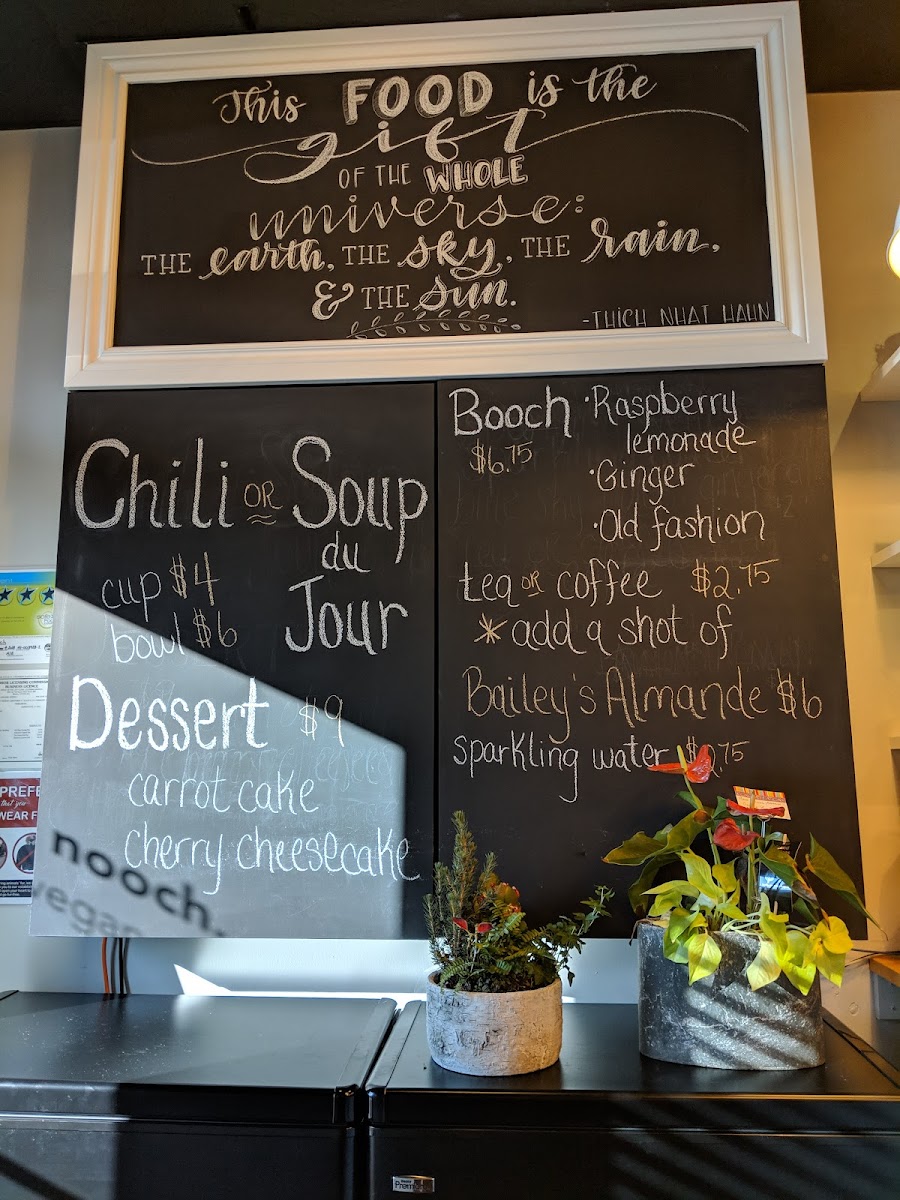 This FOOD is the
gift
OF THE WHOLE
universe:
THE earth, THE sky, THE rain,
& THE sun.
-THICH NHAT HAHN
Chili OR Soup
du
Jour
cup $4
bowl $6
Dessert $9
carrot cake
cherry cheesecake
Booch
$6.75
·Raspberry
lemonade
·Ginger
·Old fashion
tea OR coffee $2.75
*add a shot of
Bailey's Almande $6
sparkling water .75
nooch.
vegan
PREFE
that you
WEAR F